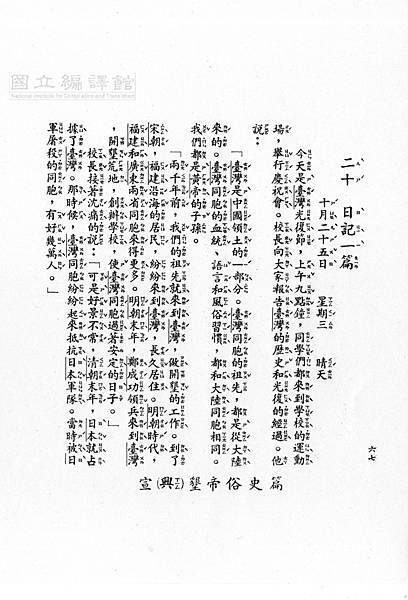 國立編譯館
National Institute for Compilation and Translation
二十 日記一篇
十月二十五日 星期三 晴天
今天是臺灣光復節，上午九點鐘，同學們都來到學校的運動
場，舉行慶祝會。校長向大家報告臺灣的歷史和光復的經過。他
說：
「臺灣是中國領土的一部分。臺灣同胞的祖先，都是從大陸
來的。臺灣同胞的血統、語言和風俗習慣，都和大陸同胞相同。
我們都是黃帝的子孫。
「兩千年前，我們的祖先就來到臺灣，做開墾的工作。到了
宋朝，福建沿海的居民，紛紛來到臺灣，長久居住。明朝時代，
福建和廣東兩省同胞來得更多。明朝末年，鄭成功領兵來到臺灣
，開墾荒地，創辦學校，使臺灣同胞過著安定的日子。」
校長接著沈痛的說：「可是好景不常，清朝末年，日本就占
據了臺灣。那時候，臺灣同胞紛紛起來抵抗日本軍隊。當時被日
軍屠殺的同胞，有好幾萬人。」
篇史俗帝墾(興)宣
六七